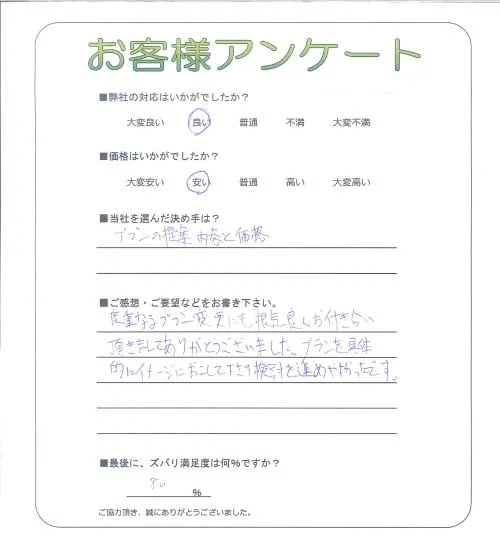 お客様アンケート
■弊社の対応はいかがでしたか？
大変良い 良い 普通 不満 大変不満
■価格はいかがでしたか？
大変安い 安い 普通 高い 大変高い
■当社を選んだ決め手は？
プランの提案内容と価格
■ご感想・ご要望などをお書き下さい。
度重なるプラン変更にも根気良くお付き合い
頂きましてありがとうございました。プランを具体
的にイメージにおこして下さり検討を進めやすかったです。
■最後に、ズバリ満足度は何％ですか？
%
ご協力頂き、誠にありがとうございました。